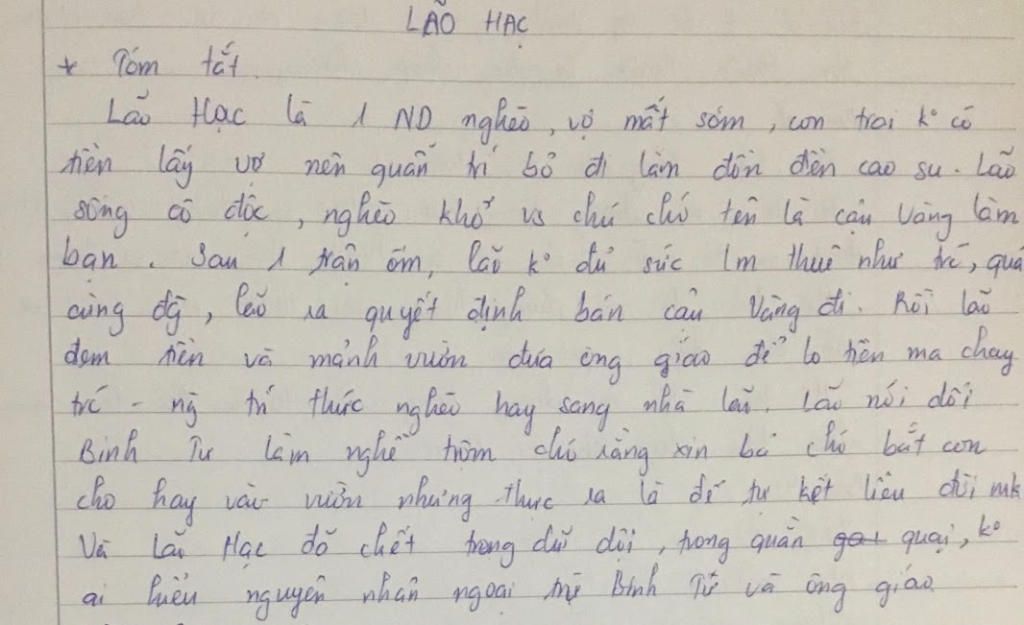 LÃO HẠC
* Tóm tắt
Lão Hạc là 1 ND nghèo, vợ mất sớm, con trai k° có
tiền lấy vợ nên quẫn trí bỏ đi làm đồn điền cao su. Lão
sống cô độc, nghèo khổ vs chú chó tên là cậu Vàng làm
bạn. Sau 1 trận ốm, lão k° đủ sức lm thuê như trc, quá
cùng đg, lão ra quyết định bán cậu Vàng đi. Rồi lão
đem tiền và mảnh vườn đưa ông giáo để lo tiền ma chay
trc - ng trí thức nghèo hay sang nhà lão. Lão nói dối
Binh Tư làm nghề trộm chó rằng xin bả chó bắt con
chó hay vào vườn nhưng thực ra là để tự kết liễu đời mk
Và Lão Hạc đã chết trong dữ dội, trong quằn quại, k°
ai hiểu nguyên nhân ngoại trừ Binh Tư và ông giáo